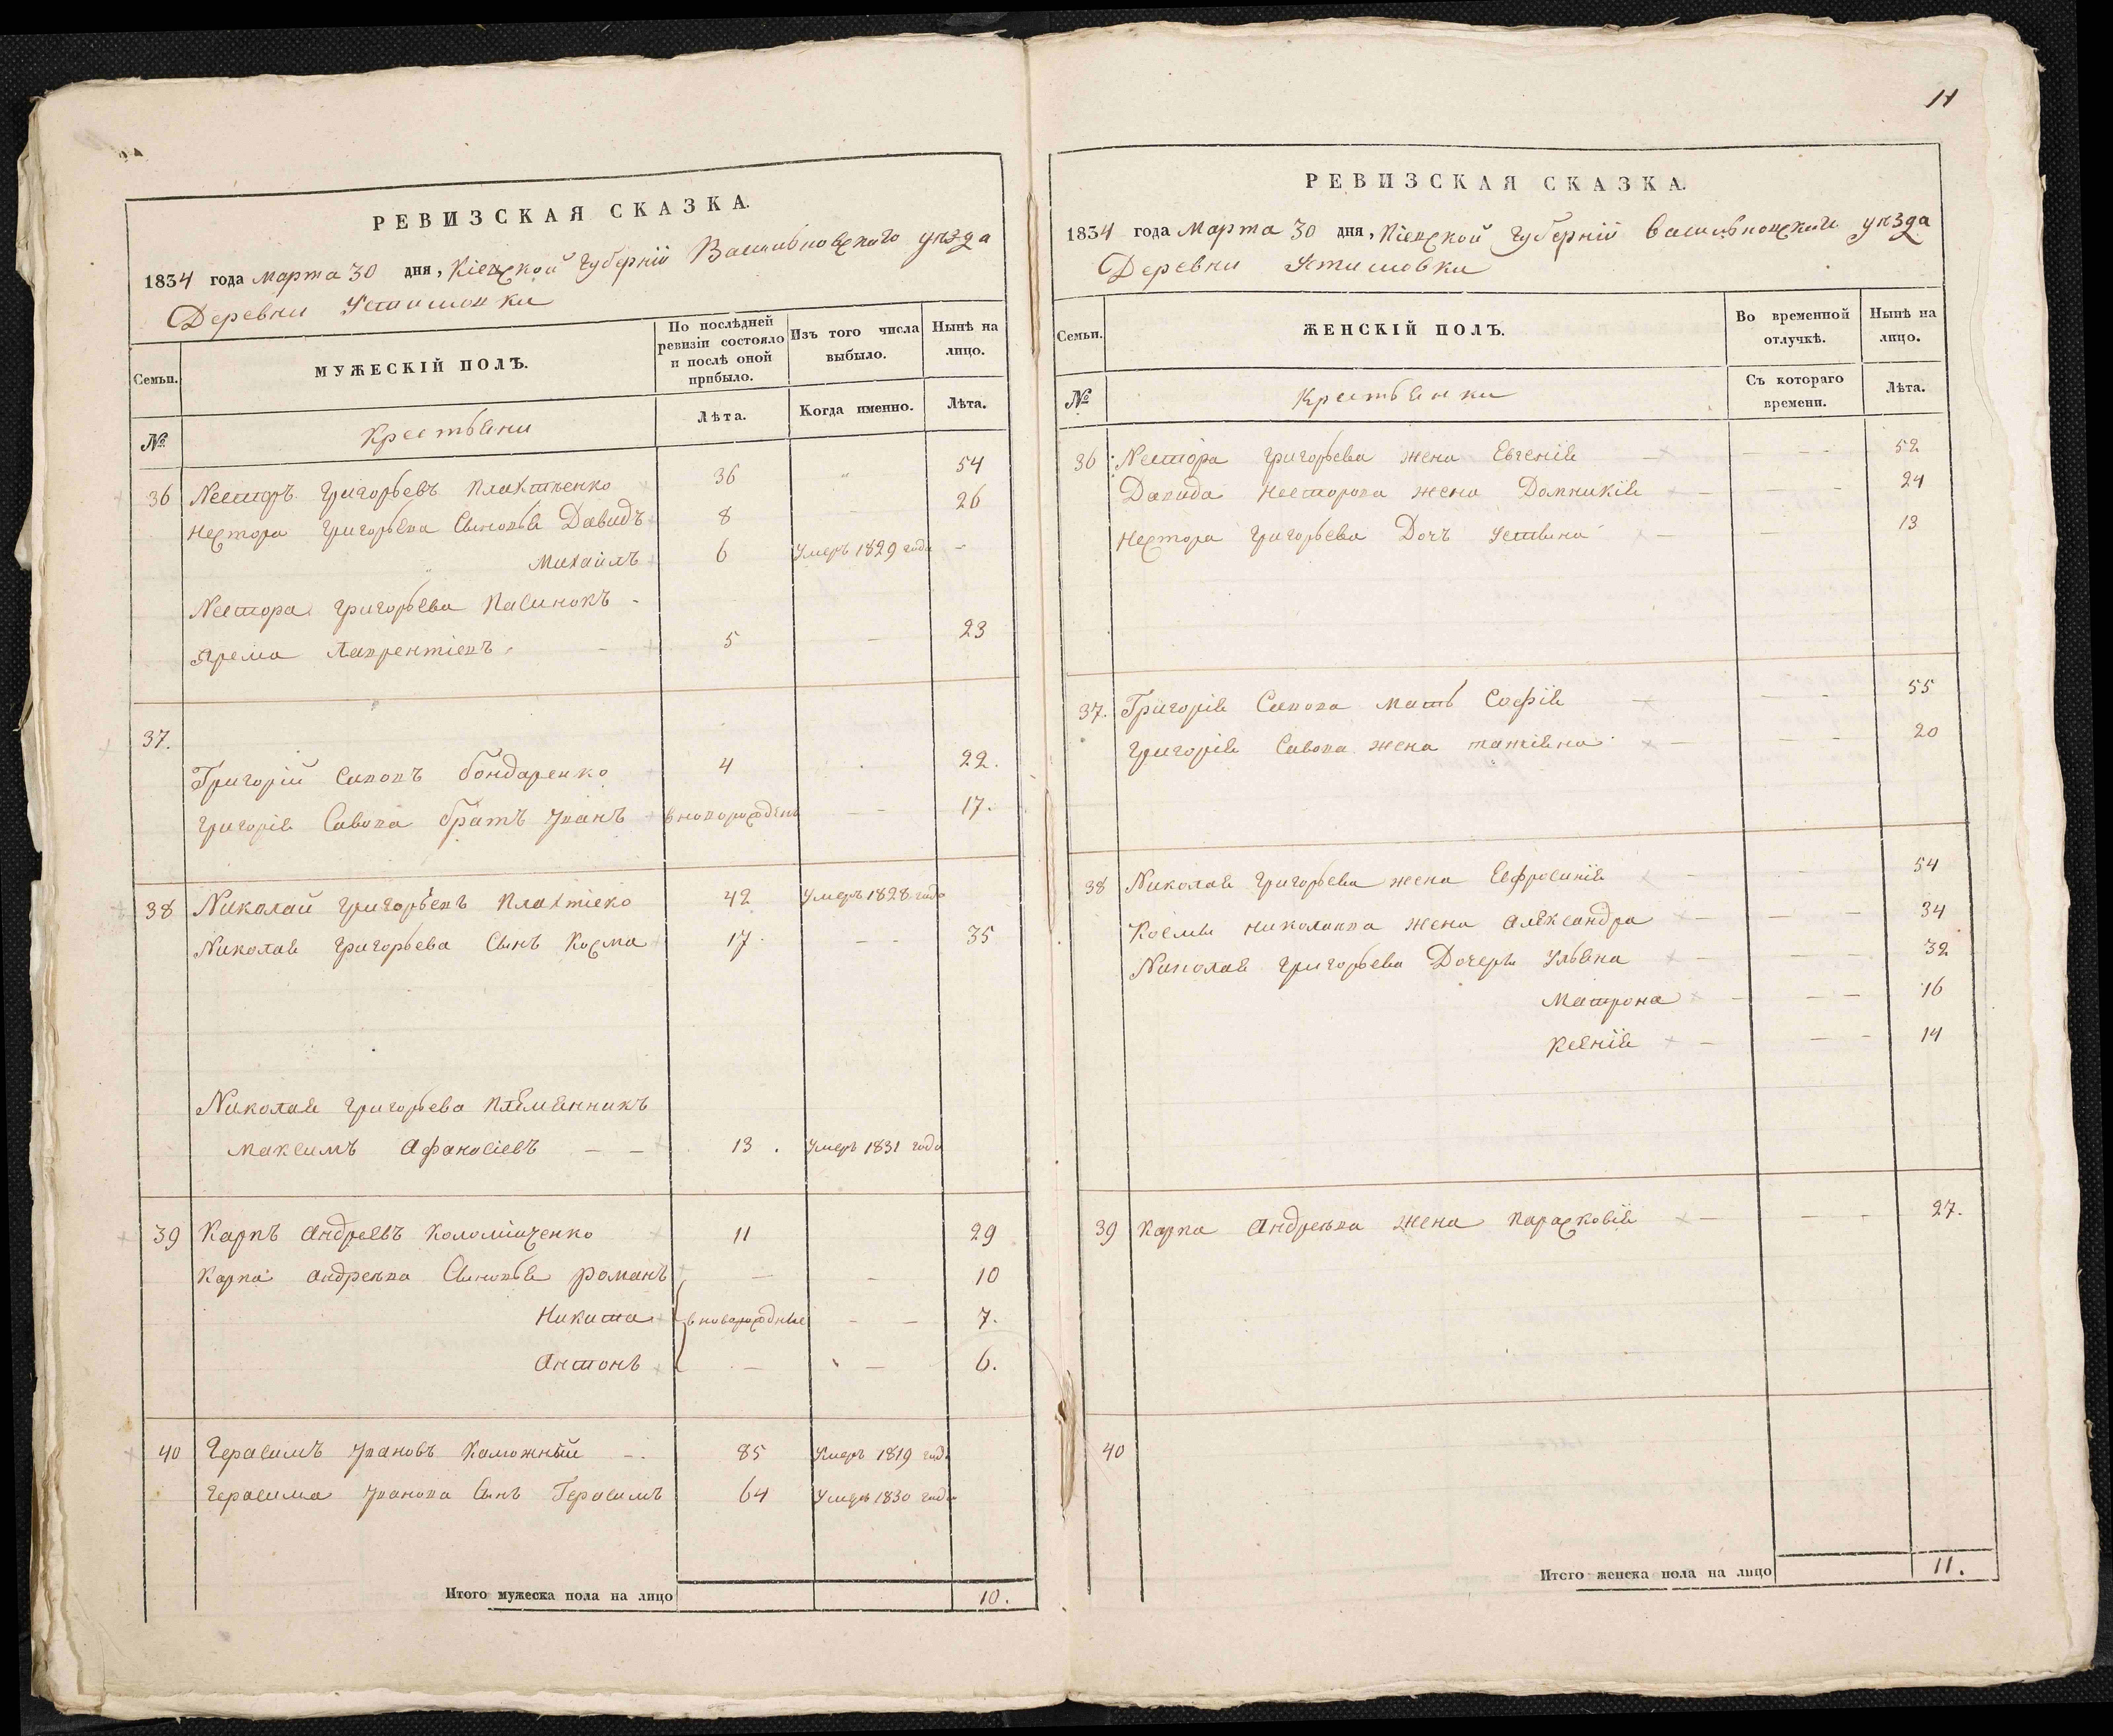 РЕВИЗСКАЯ СКАЗКА.
1834 года Марта 30 дня, Кіевской Губерніи Васильковского уѣзда
Деревни Устимовки
Семьи.
МУЖЕСКІЙ ПОЛЪ.
По послѣдней ревизіи состояло и послѣ оной прибыло.
Изъ того числа выбыло.
Нынѣ на лицо.
№
Крестьяни
Лѣта.
Когда именно.
Лѣта.
36 Несторъ Григорьевъ Плахтѣенко 36 54
Нестора Григорьева Сыновья Давидъ 8 26
Михаилъ 6 Умеръ 1829 года -
Нестора Григорьева Пасинокъ -
Ярема Лаврентіевъ 5 - 23
37.
Григорій Савовъ Бондаренко 4 22.
Григорія Савова братъ Иванъ в новорожденъ - 17.
38 Николай Григорьевъ Плахтіеко 42 Умеръ 1828 года
Николая Григорьева Сынъ Косма 17 - - 35
Николая Григорьева Племянникъ
Максимъ Афанасіевъ - - 13. Умеръ 1831 года
39 Карпъ Андреевъ Коломійченко 11 29
Карпа Андреева Сыновья Романъ - - 10
Никита в новорождные - - 7.
Антонъ - - 6.
40 Герасимъ Ивановъ Каможный - 85 Умеръ 1819 года
Герасима Иванова Сынъ Герасимъ 64 Умеръ 1830 года
Итого мужеска пола на лицо 10.
11
РЕВИЗСКАЯ СКАЗКА.
1834 года Марта 30 дня, Кіевской Губерніи Васильковскаго уѣзда
Деревни Устимовки
Семьи.
ЖЕНСКІЙ ПОЛЪ.
Во временной отлучкѣ.
Нынѣ на лицо.
№
Крестьянки
Съ котораго времени.
Лѣта.
36 Нестора Григорьева жена Евгенія - - - 52
Давида Несторова жена Домникія - - - 24
Нестора Григорьева Дочъ Устина - - 13
37. Григорія Савова мать Софія - - - 55
Григорія Савова жена татіяна - - - 20
38 Николая Григорьева жена Евфросинія - - - 54
Космы Николаева жена Александра - - - 34
Николая Григорьева Дочери Ульяна - - - 32
Матрона - - - 16
Ксенія - - - 14
39 Карпа Андреева жена Парасковія - - - 27.
40
Итого женска пола на лицо 11.